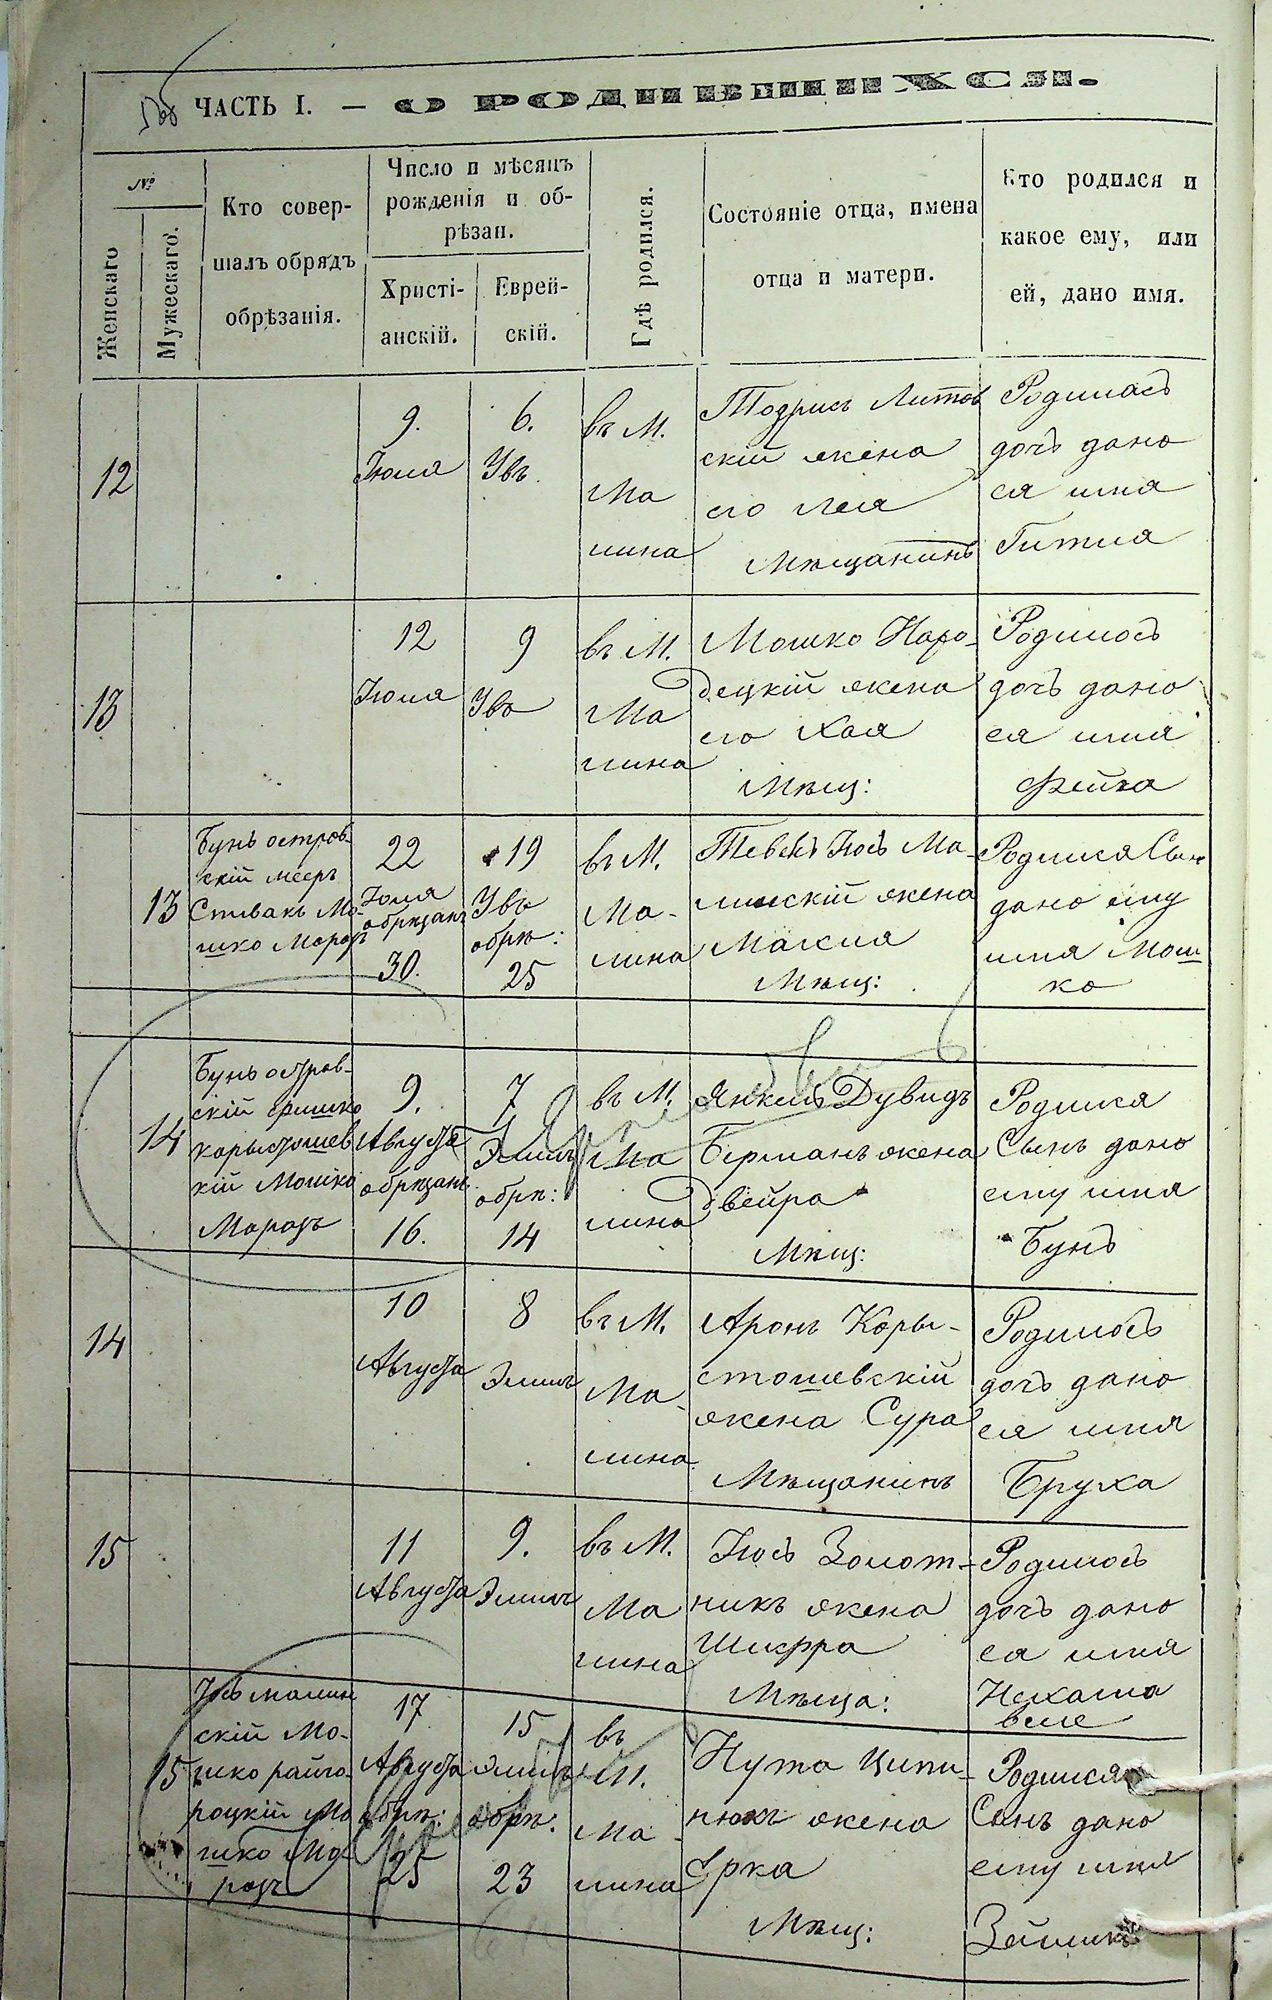 ЧАСТЬ I. — О РОДИВШИХСЯ.
№
Женскаго
Мужескаго.
Кто совер-
шалъ обрядъ
обрѣзанія.
Число и мѣсяцъ
рожденія и об-
рѣзан.
Христі-
анскій.
Еврей-
скій.
Гдѣ родился.
Состояніе отца, имена
отца и матери.
Кто родился и
какое ему, или
ей, дано имя.
12
9.
Іюля
6.
Увъ
въ М.
Ма
лина
Тодрисъ Литов
скій жена
его Лея
Мѣщанинъ
Родилась
дочъ дано
ея имя
Гитля
13
12
Іюля
9
Увъ
въ М.
Ма
лина
Мошко Наро-
децкій жена
его Хая
Мѣщ:
Родилось
дочъ дано
ея имя
Фейга
13
Бунъ остров-
скій мееръ
Спивакъ Мо-
шко Морозъ
22
Іюля
обрѣзанъ
30.
19
Увъ
обрѣ:
25
въ М.
Ма-
лина
Іосъ Ма-
линскій жена
Малкія
Мѣщ:
Родился Сынъ
дано ему
имя Мош
ко
14
Бунъ остров-
скій ершико
Карыстошев
кій Мошко
Морозъ
9.
Августа
обрѣзанъ
16.
7
Элилъ
обрѣ:
14
въ М.
Ма
лина
Янкель Дувидъ
Берманъ жена
Двейра
Мѣщ:
Родился
Сынъ дано
ему имя
Бунъ
14
10
Августа
8
Элилъ
въ М.
Ма-
лина
Аронъ Коры-
стошевскій
жена Сура
Мѣщанинъ
Родилось
дочъ дано
ея имя
Бруха
15
11
Августа
9.
Элилъ
въ М.
Ма
лина
Іосъ Золот-
никъ жена
Шифра
Мѣща:
Родилось
дочъ дано
ея имя
Нехама
15
Іосъ малин
скій Мо-
шко райго-
роцкій Мо
шко Мо-
розъ
17
Августа
обрѣ:
25
15
Элилъ
обрѣ:
23
въ
М.
Ма-
лина
Нута Ципи-
нюкъ жена
Ерка
Мѣщ:
Родился
Сынъ дано
ему имя